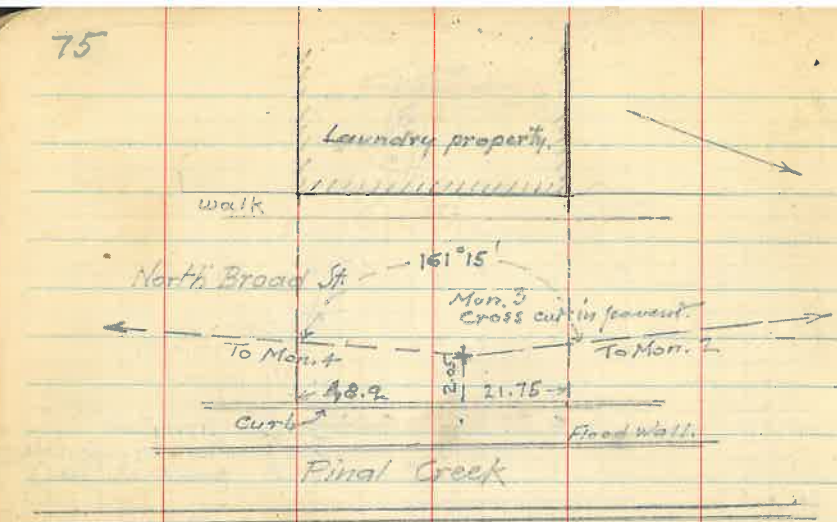 75
Laundry property.
walk
161°15'
North Broad St.
Mon. 3
Cross cut in pavemt.
To Mon. 4
To Mon. 2
2.05
21.75
Curb
Flood Wall.
Pinal Creek